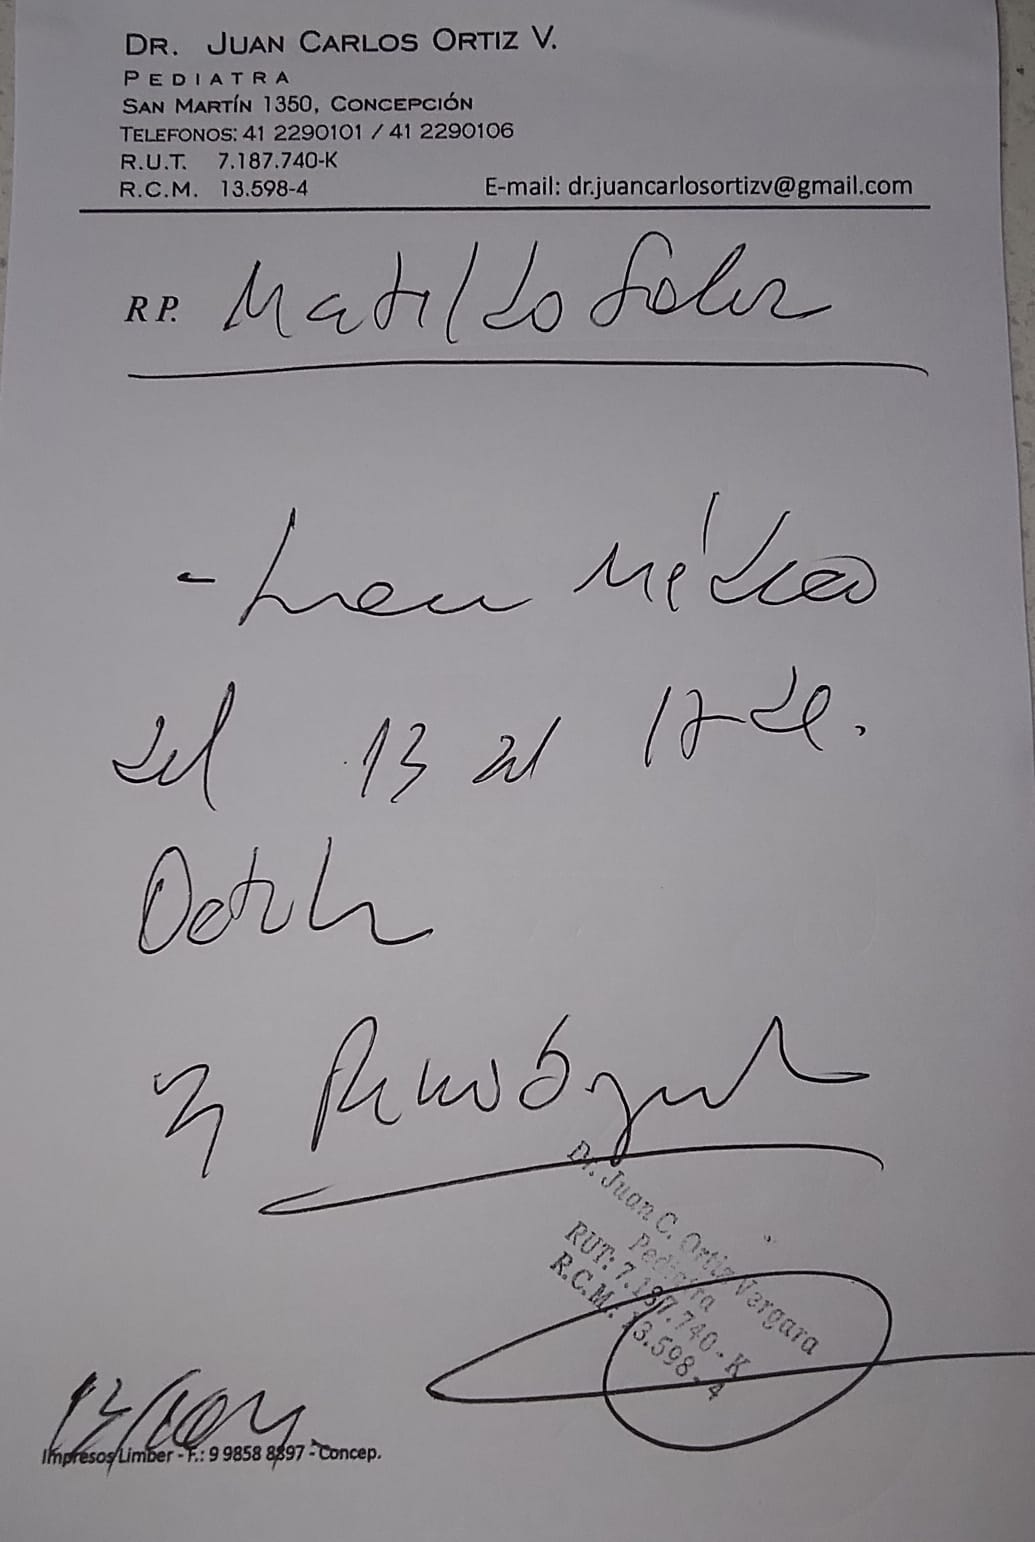 DR. JUAN CARLOS ORTIZ V.
PEDIATRA
SAN MARTÍN 1350, CONCEPCIÓN
TELEFONOS: 41 2290101 / 41 2290106
R.U.T. 7.187.740-K
R.C.M. 13.598-4 E-mail: dr.juancarlosortizv@gmail.com
RP. Matilda Soler
- Licen Médica
del 13 al 17 de
Octubre
Dr. Juan C. Ortiz Vergara
Pediatra
RUT: 7.187.740-K
R.C.M. 13.598-4
Impresos Limber - F.: 9 9858 8897 - Concep.